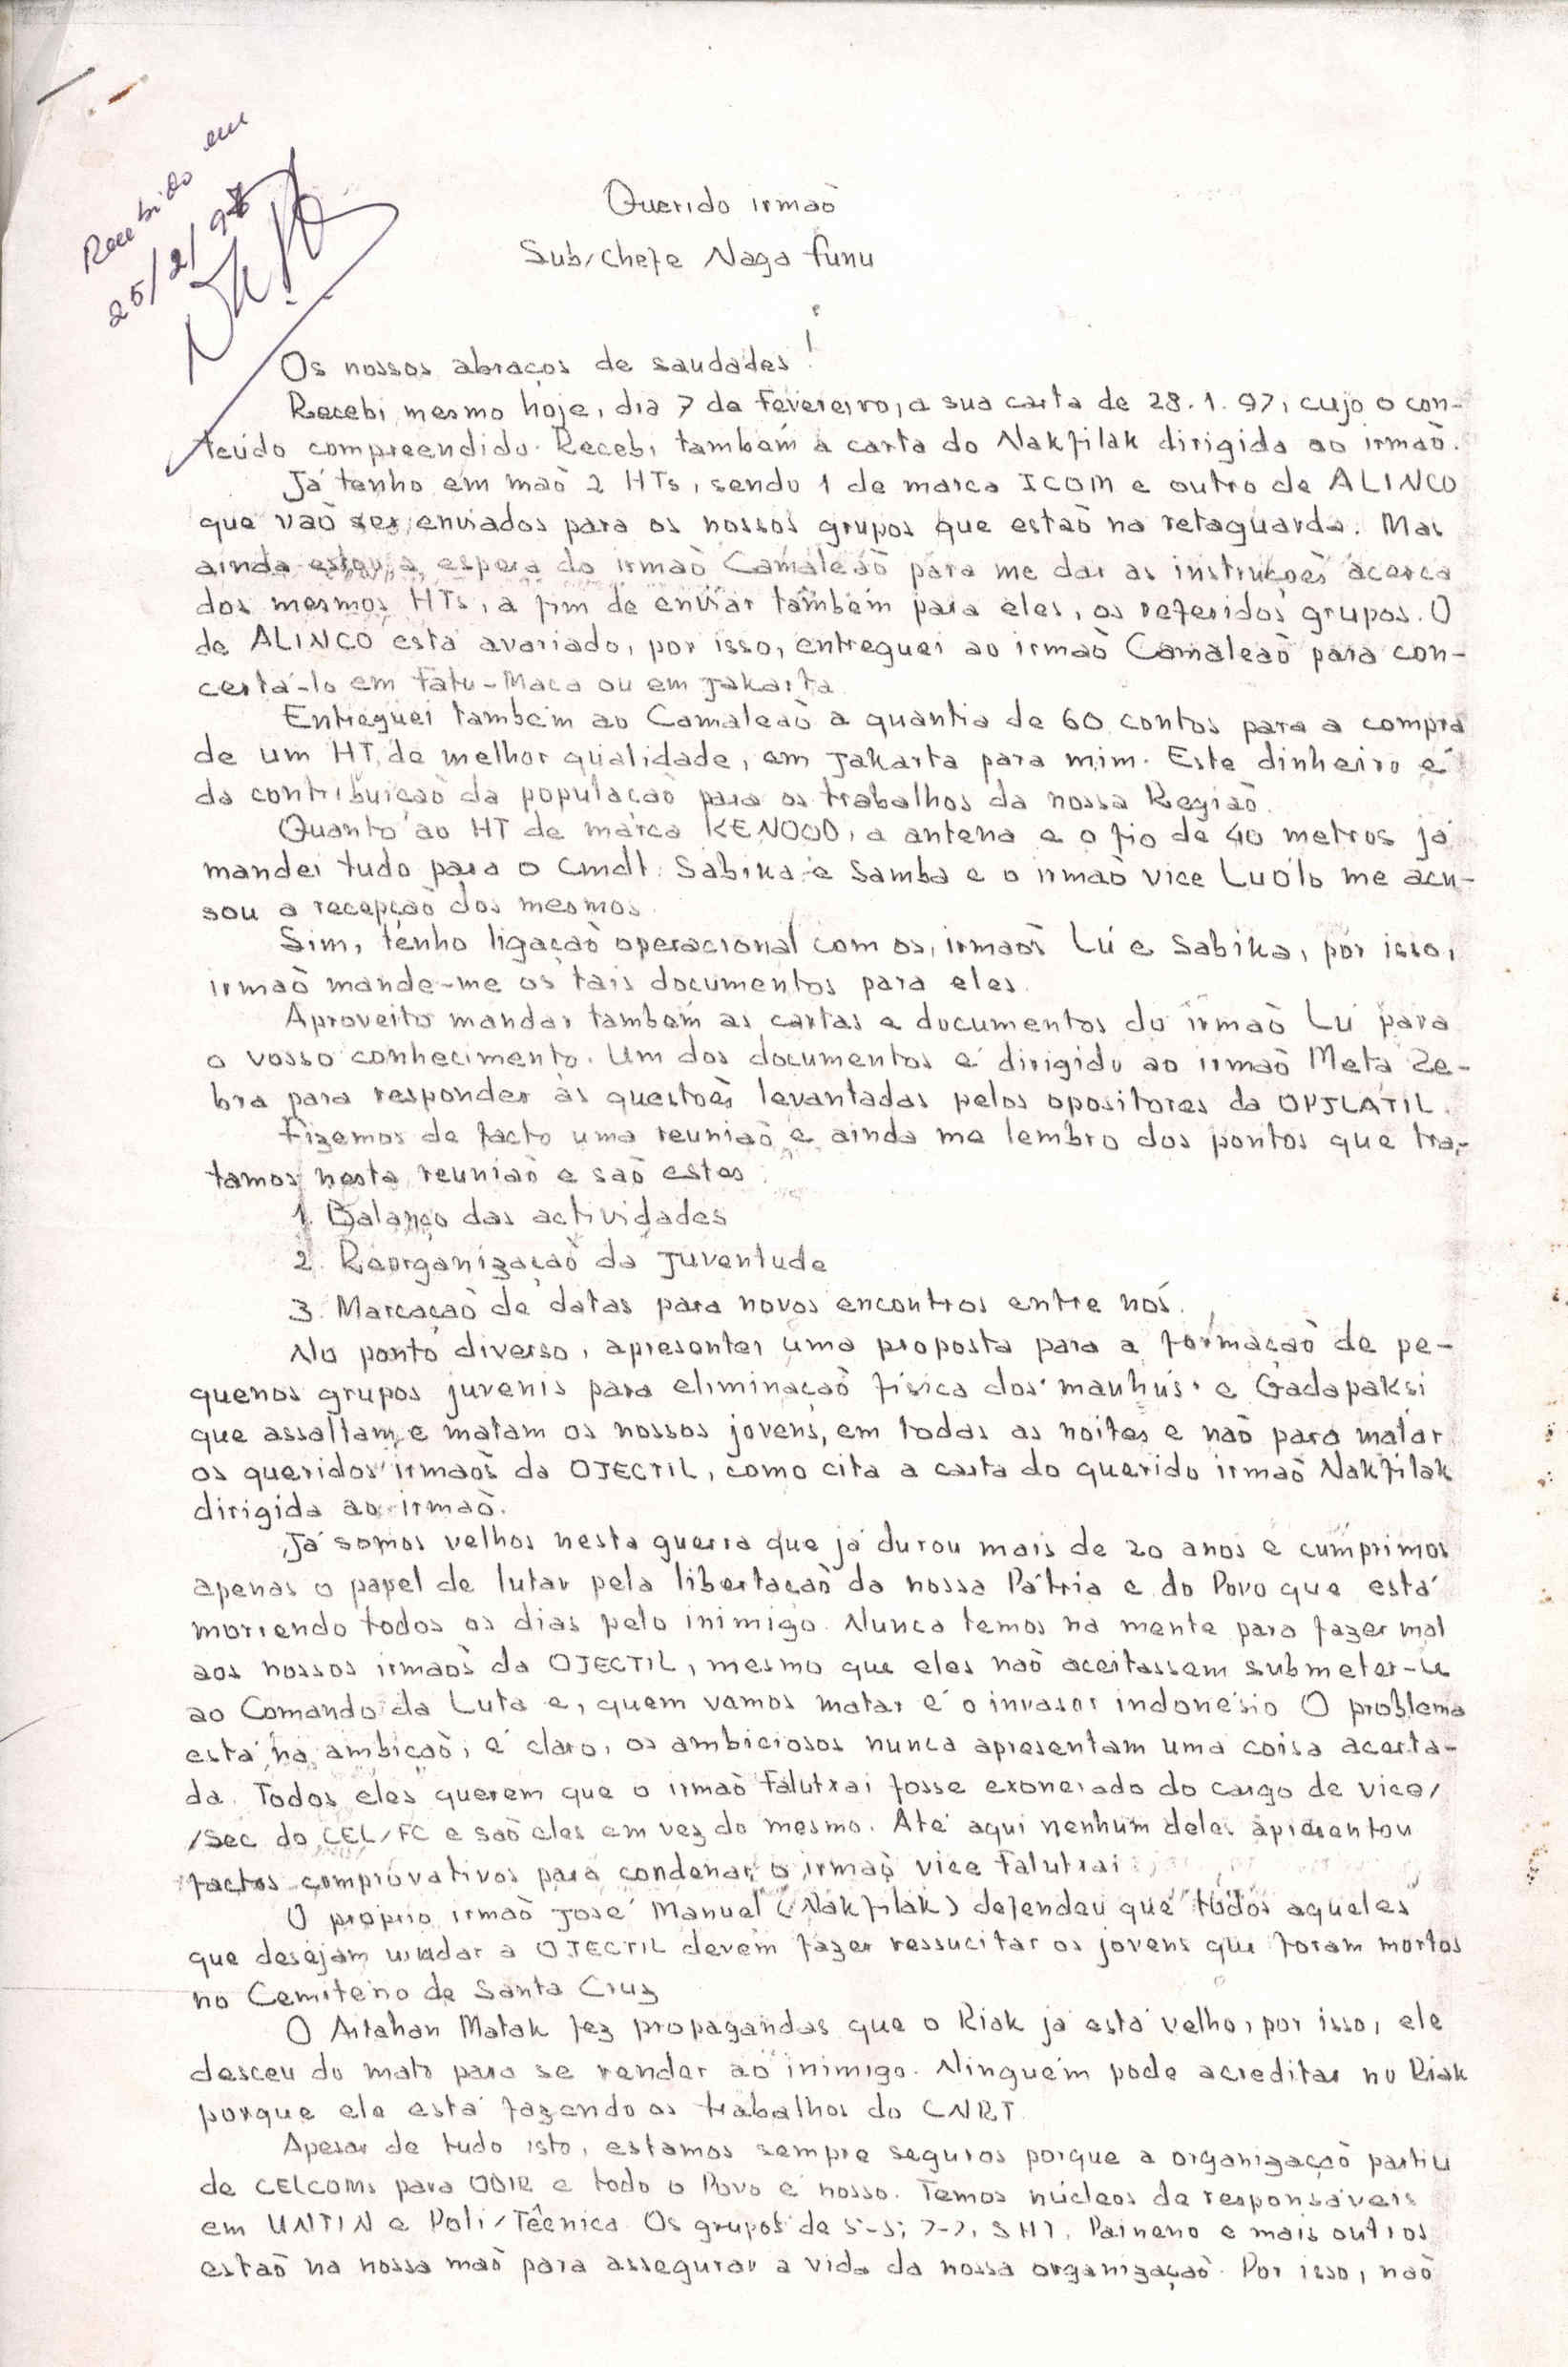 Recebido em
25/2/97
Querido irmaõ
Sub/Chefe Naga funu
Os nossos abraços de saudades!
Recebi mesmo hoje, dia 7 de Fevereiro, a sua carta de 28.1.97, cujo o con-
teúdo compreendido. Recebi também a carta do Nakfilak dirigida ao irmaõ.
Já tenho em maõ 2 HTs, sendo 1 de marca ICOM e outro de ALINCO
que vaõ ser enviados para os nossos grupos que estaõ na retaguarda. Mas
ainda estou a espera do irmaõ Camaleaõ para me dar as instruçoẽs acerca
dos mesmos HTs, a fim de enviar também para eles, os referidos grupos. O
de ALINCO está avariado, por isso, entreguei ao irmaõ Camaleaõ para con-
certá-lo em Fatu-Maca ou em Jakarta.
Entreguei também ao Camaleaõ a quantia de 60 contos para a compra
de um HT de melhor qualidade, em Jakarta para mim. Este dinheiro é
da contribuiçaõ da populaçaõ para os trabalhos da nossa Regiaõ.
Quanto ao HT de marca KENOOD, a antena e o fio de 40 metros já
mandei tudo para o Cmdt. Sabika e Samba e o irmaõ vice Luólo me acu-
sou a recepçaõ dos mesmos.
Sim, tenho ligaçaõ operacional com os irmaõs Lú e Sabika, por isso,
irmaõ mande-me os tais documentos para eles.
Aproveito mandar também as cartas e documentos do irmaõ Lú para
o vosso conhecimento. Um dos documentos é dirigido ao irmaõ Metá Ze-
bra para responder às questoẽs levantadas pelos opositores da OPJLATIL.
Fizemos de facto uma reuniaõ e ainda me lembro dos pontos que tra-
tamos nesta reuniaõ e saõ estes:
1. Balanço das actividades
2. Reorganizaçaõ da Juventude
3. Marcaçaõ de datas para novos encontros entre nós.
No ponto diverso, apresentei uma proposta para a formaçaõ de pe-
quenos grupos juvenis para eliminaçaõ física dos "mauhús" e Gadapaksi
que assaltam e matam os nossos jovens, em todas as noites e naõ para matar
os queridos irmaõs da OJECTIL, como cita a carta do querido irmaõ Nakfilak
dirigida ao irmaõ.
Já somos velhos nesta guerra que já durou mais de 20 anos e cumprimos
apenas o papel de lutar pela libertaçaõ da nossa Pátria e do Povo que está
morrendo todos os dias pelo inimigo. Nunca temos na mente para fazer mal
aos nossos irmaõs da OJECTIL, mesmo que eles naõ aceitassem submeter-se
ao Comando da Luta e, quem vamos matar é o invasor indonésio. O problema
está na ambiçaõ, é claro, os ambiciosos nunca apresentam uma coisa acerta-
da. Todos eles querem que o irmaõ Falutxai fosse exonerado do cargo de vice/
/Sec do CEL/FC e saõ eles em vez do mesmo. Até aqui nenhum deles apresentou
factos comprovativos para condenar o irmaõ vice Falutxai.
O próprio irmaõ José Manuel (Nakfilak) defendeu que todos aqueles
que desejam mudar a OJECTIL devem fazer ressucitar os jovens que foram mortos
no Cemitério de Santa Cruz
O Aitahan Matak fez propagandas que o Riak já está velho, por isso, ele
desceu do mato para se render ao inimigo. Ninguém pode acreditar no Riak
porque ele está fazendo os trabalhos do CNRT.
Apesar de tudo isto, estamos sempre seguros porque a organizaçaõ partiu
de CELCOMs para ODIR e todo o Povo é nosso. Temos núcleos de responsáveis
em UNTIN e Poli/Técnica. Os grupos de 5-5; 7-7, SHT, Paineno e mais outros
estaõ na nossa maõ para assegurar a vida da nossa organizaçaõ. Por isso, naõ